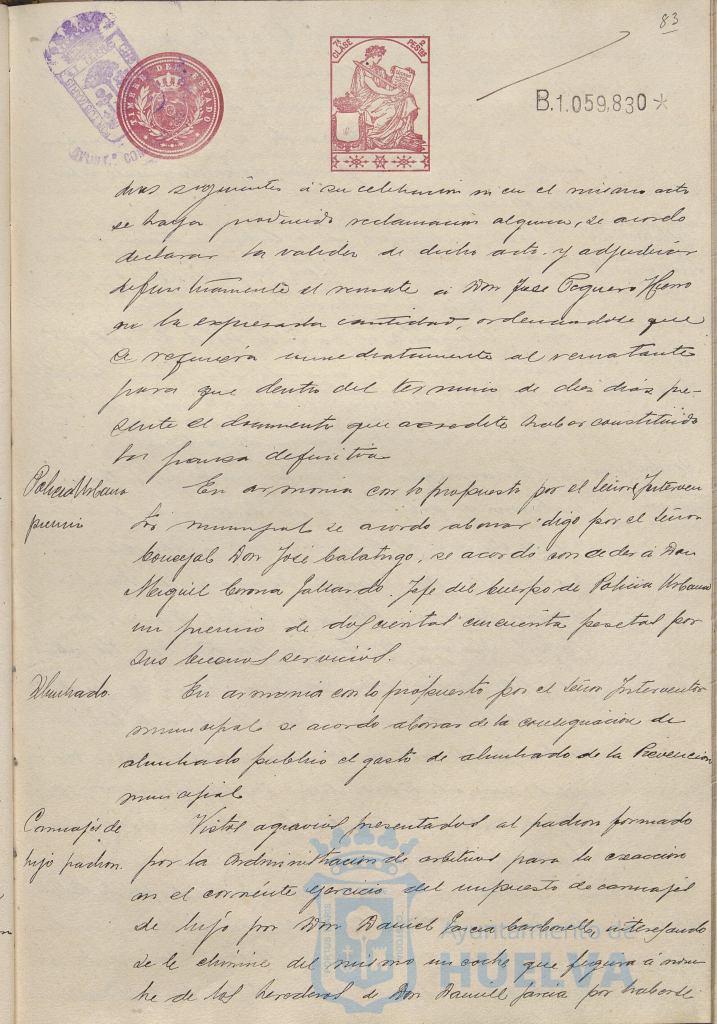 83
7ª CLASE 2 PESTAS
TIMBRE DEL ESTADO
B.1.059.830 *
dias siguientes á su celebracion ni en el mismo acto
se haya producido reclamacion alguna, se acordo
declarar la validez de dicho acto y adjudicar
definitivamente el remate á Don José Peguero Hierro
en la expresada cantidad, ordenandose que
se requiera inmediatamente al rematante
para que dentro del termino de diez dias pre-
sente el documento que acredite haber constituido
la fianza definitiva
Policia Urbana
premio
En armonia con lo propuesto por el Señor Interven
tor municipal se acordo abonar digo por el Señor
Concejal Don José Calatrigo, se acordó conceder á Don
Miguel Corona Gallardo Jefe del Cuerpo de Policia Urbana
un premio de doscientas cincuenta pesetas por
sus buenos servicios.
Alumbrado.
En armonia con lo propuesto por el Señor Interventor
municipal se acordo abonar de la consignacion de
alumbrado publico el gasto de alumbrado de la Prevencion
municipal
Carruajes de
lujo padron.
Vistos agravios presentados al padron formado
por la Administracion de arbitrios para la exaccion
en el corriente ejercicio del impuesto de carruajes
de lujo por Don Daniel Garcia Carbonell, interesando
se le elimine del mismo un coche que figura á nom
bre de los herederos de Don Daniel Garcia por haberse
Ayuntamiento de
HUELVA